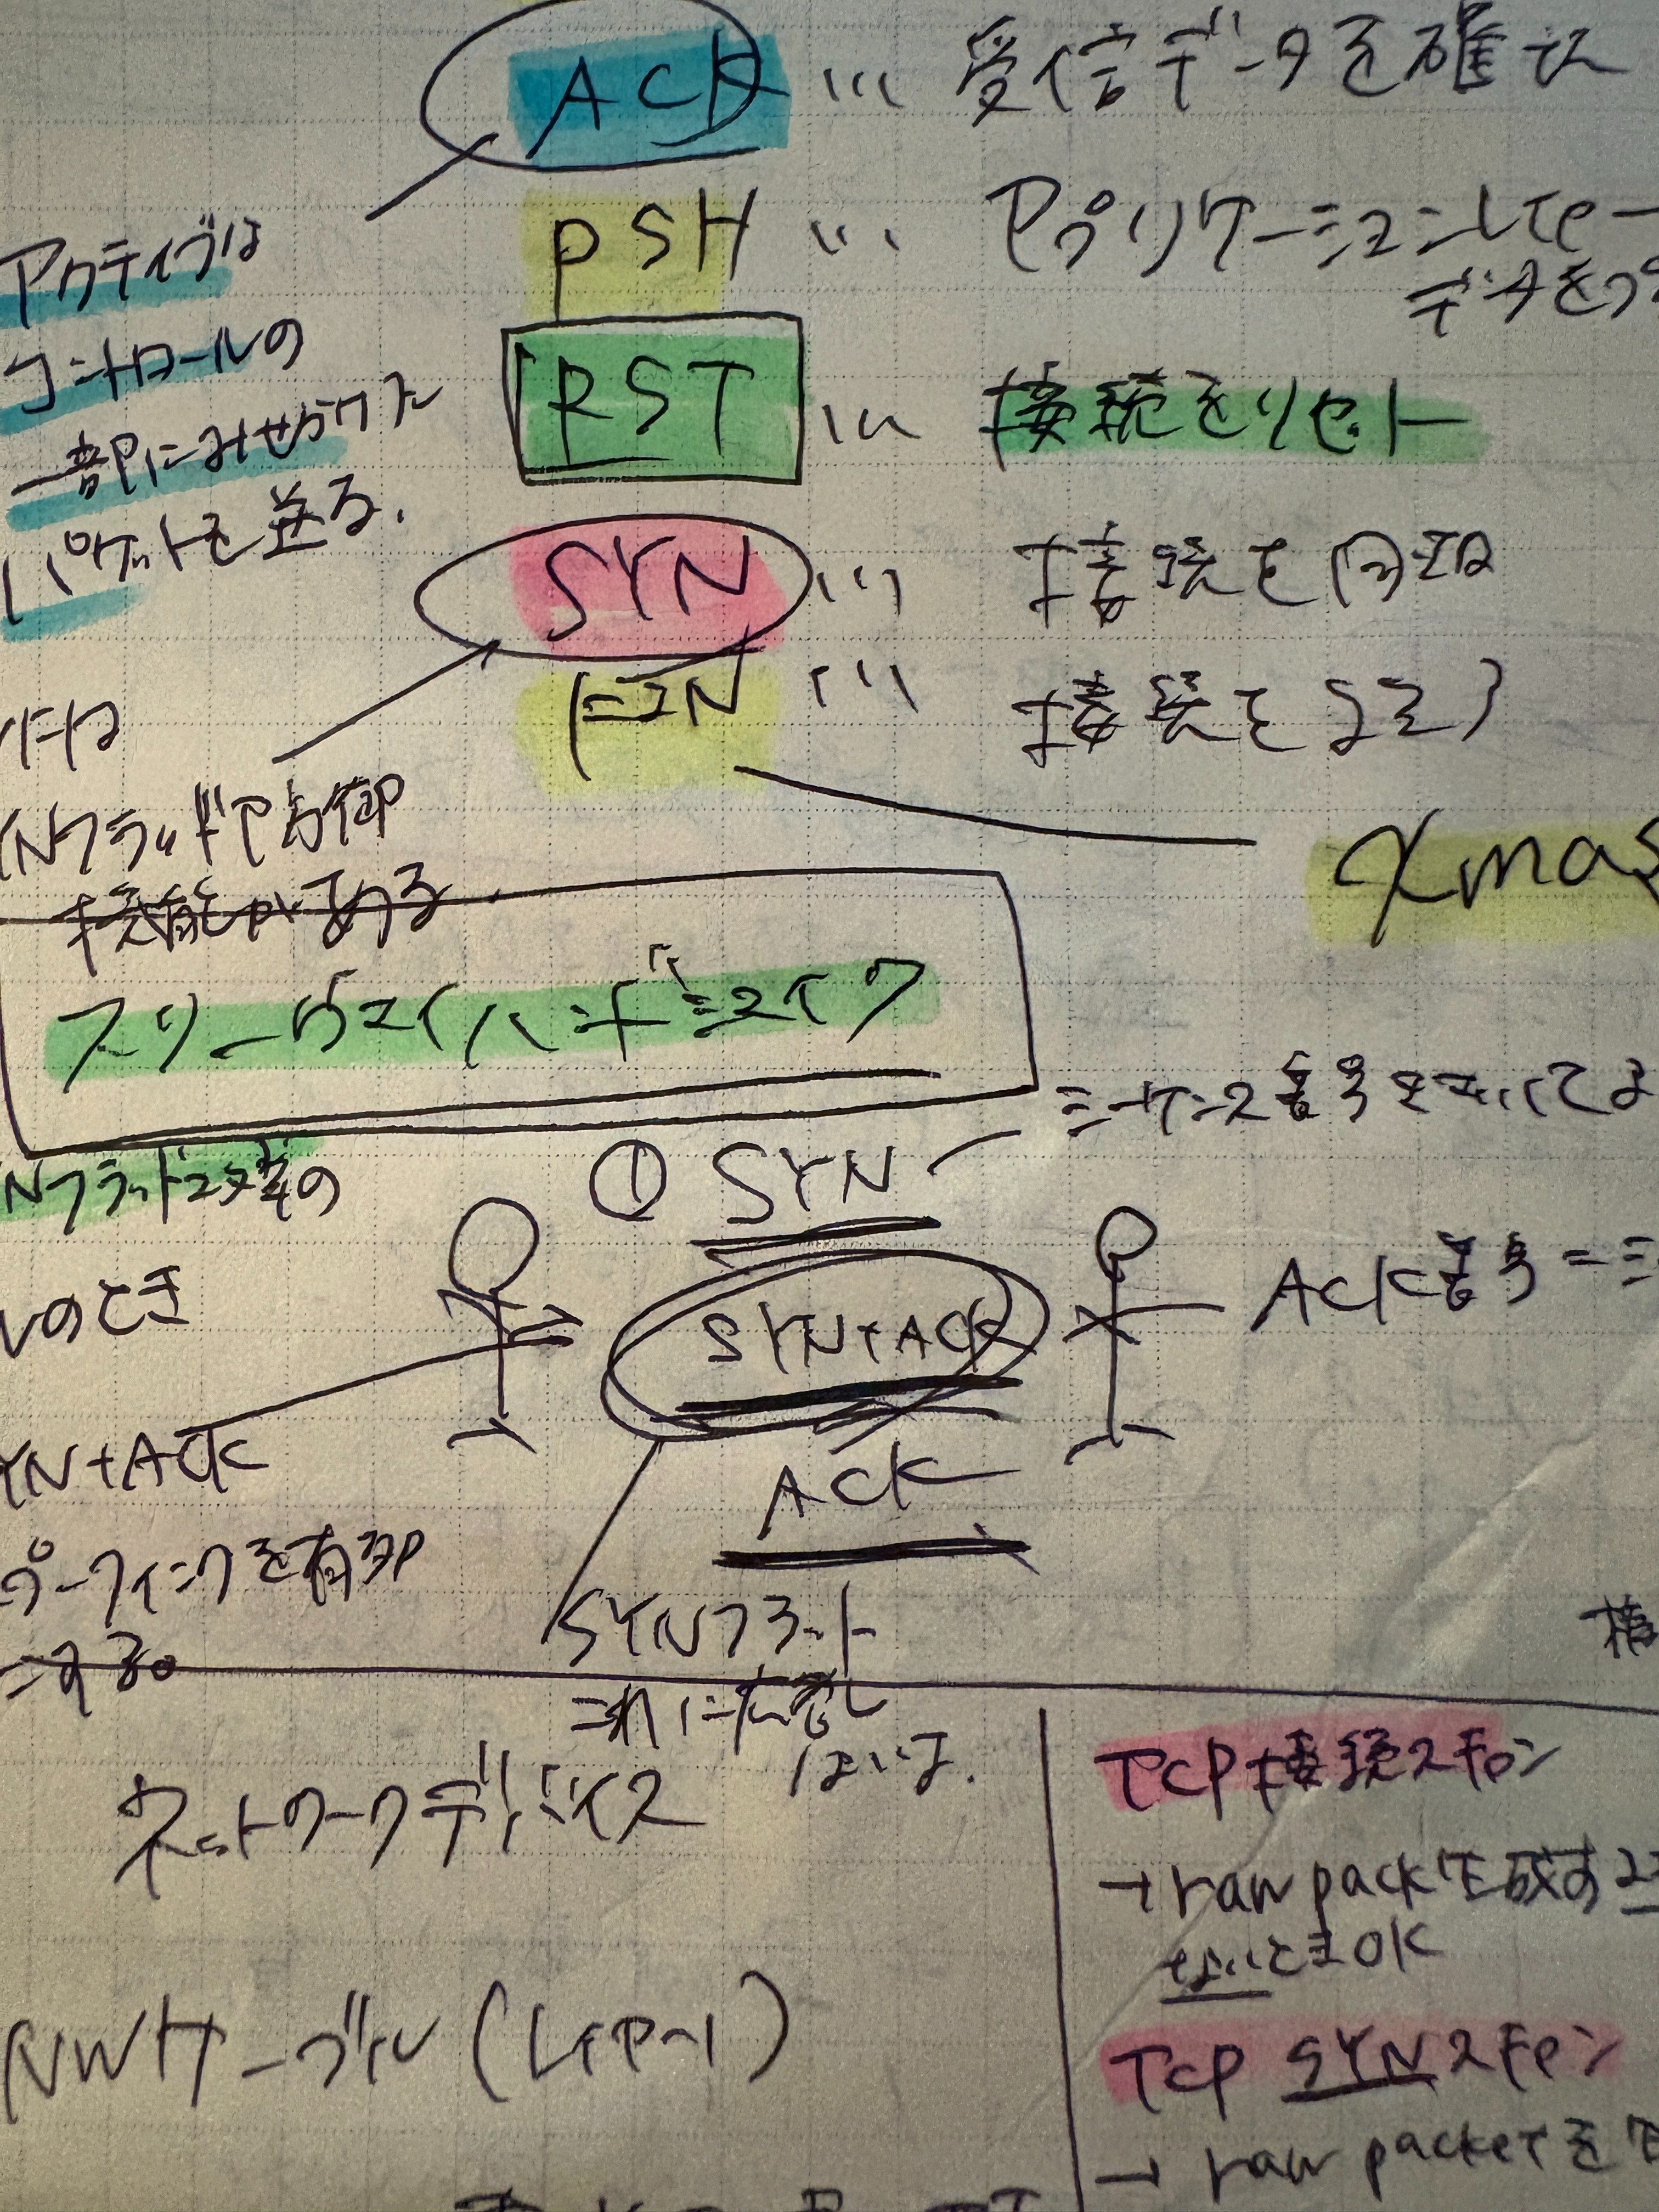 ACK … 受信データを確認
PSH … アプリケーションレイヤー
データをプ
RST … 接続をリセット
SYN … 接続を開始
FIN … 接続を終了
アクティブは
コントロールの
一部にみせかけた
パケットを送る.
SYNフラッド防御
機能がある.
Xmas
スリーウェイハンドシェイク
シーケンス番号を
Nフラッド攻撃の
① SYN
のとき
SYN+ACK
ACK番号=シ
YN+ACK
ACK
プーフィングを有効
にする。
SYNフラッド
これに応答し
ない.
ネットワークデバイス
NWケーブル(レイヤー1)
TCP接続スキャン
→raw pack 生成す
ないときOK
TCP SYNスキャン
→ raw packetを生